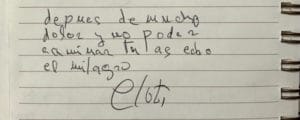 despues de mucho
dolor y no poder
caminar tu as echo
el milagro